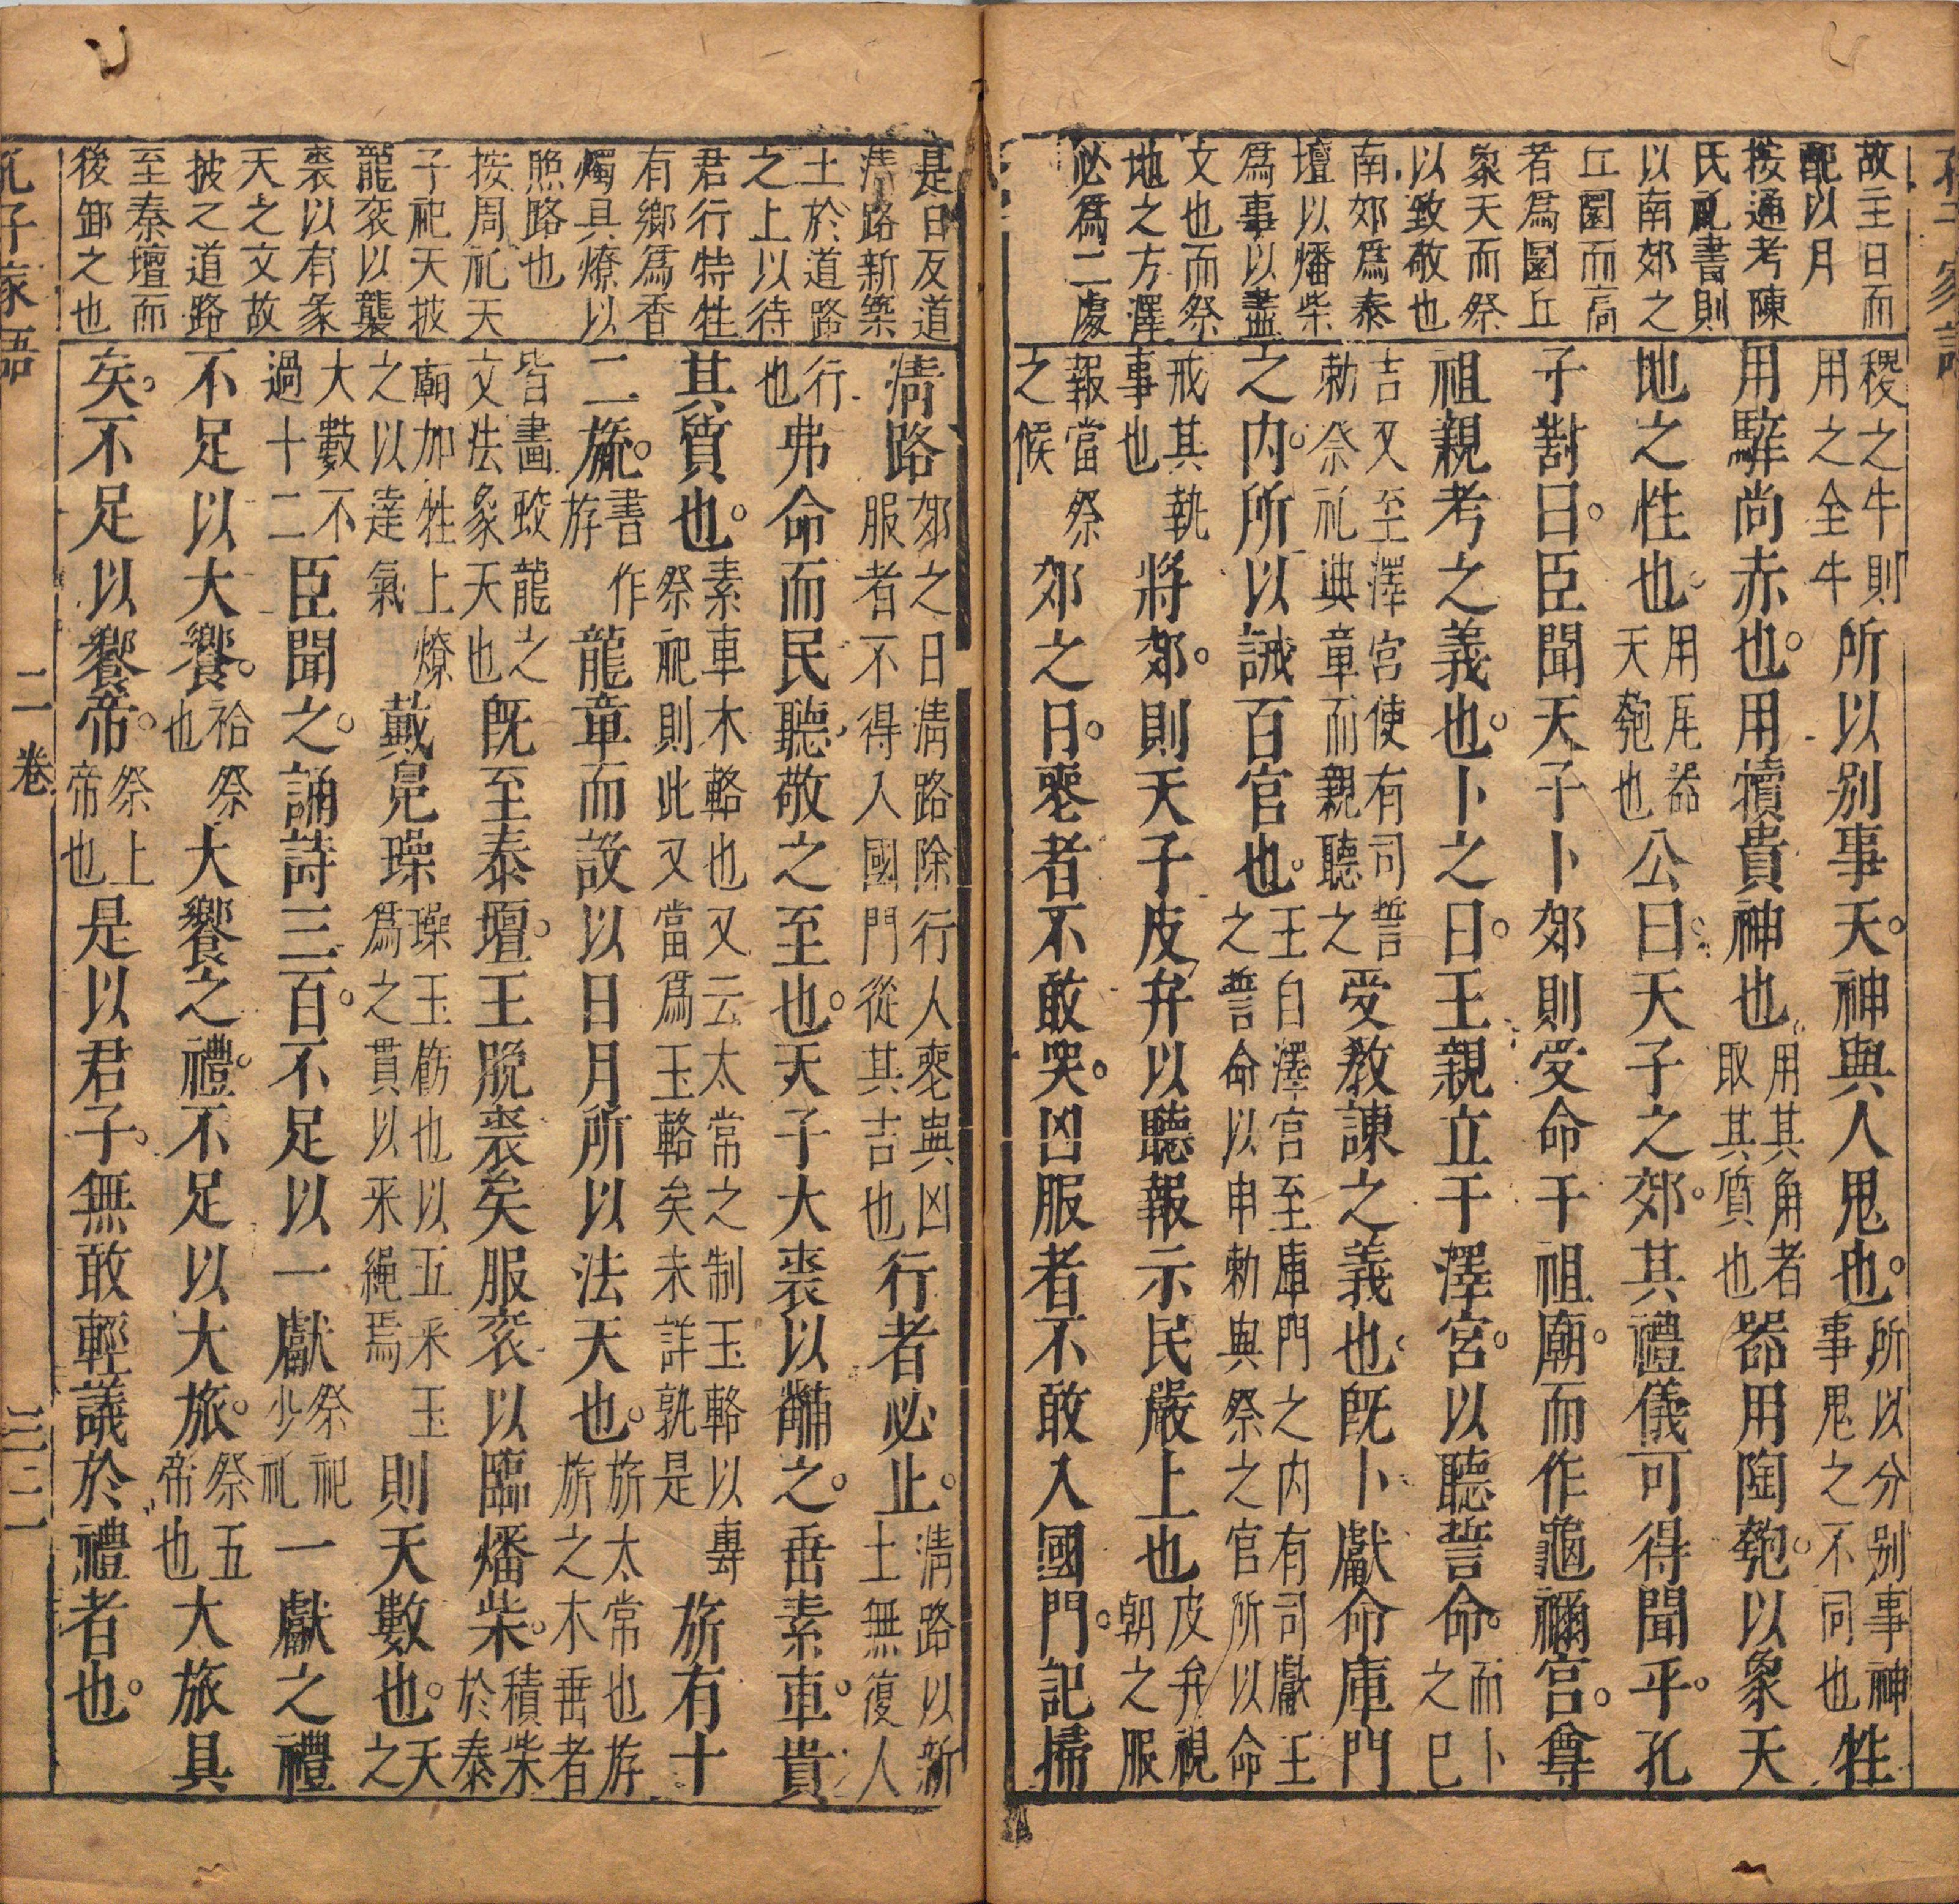 故主日而
配以月
按通考陳
氏礼書則
以南郊之
丘圜而高
者為圜丘
象天而祭
以致敬也
南郊為泰
壇以燔柴
為事以盡
文也而祭
地之方澤
必為二處
稷之牛則用之全牛所以別事天。神與人鬼也。所以分別事神事鬼之不同也牲
用騂尚赤也。用犢貴神也。用其角者取其質也器用陶匏。以象天
地之性也。用瓦器天匏也公曰。天子之郊。其禮儀可得聞乎。孔
子對曰。臣聞天子卜郊則受命于祖廟。而作龜禰宮。尊
祖親考之義也。卜之日。王親立于澤宮。以聽誓命。而卜之巳
吉又至澤宮使有司誓勅祭礼典章而親聽之受教諫之義也。既卜獻命庫門
之内。所以誡百官也。王自澤宮至庫門之内有司獻王之誓命以申勅與祭之官所以命
戒其執事也將郊。則天子皮弁以聽報示民嚴上也皮弁視朝之服
報當祭之候郊之日。喪者不敢哭。凶服者不敢入國門。記掃
是日反道
清路新築
土於道路
之上以待
君行特牲
有鄉為香
燭具燎以
照路也
按周礼天
子祀天披
龍衮以襲
裘以有象
天之文故
披之道路
至泰壇而
後卸之也
清路郊之日清路除行人喪與凶服者不得入國門從其吉也行者必止。清路以新土無復人
行也弗命而民聽。敬之至也。天子大裘以黼之。垂素車。貴
其質也。素車木輅也又云太常之制玉輅以專祭祀則此又當為玉輅矣未詳孰是旂有十
二旒。書作斿龍章而設以日月所以法天也。旂太常也斿旂之木垂者
皆畫蛟龍之文法象天也既至泰壇。王脫裘矣服衮以臨燔柴。積柴於泰
廟加牲上燎之以達氣戴冕璪璪玉飭也以五采玉為之貫以采繩焉則天數也。天之
大數不過十二臣聞之。誦詩三百。不足以一獻祭祀少礼一獻之禮
不足以大饗。祫祭也大饗之禮。不足以大旅。祭五帝也大旅具
矣。不足以饗帝。祭上帝也是以君子。無敢輕議於禮者也。
孔子家語 二卷 三二